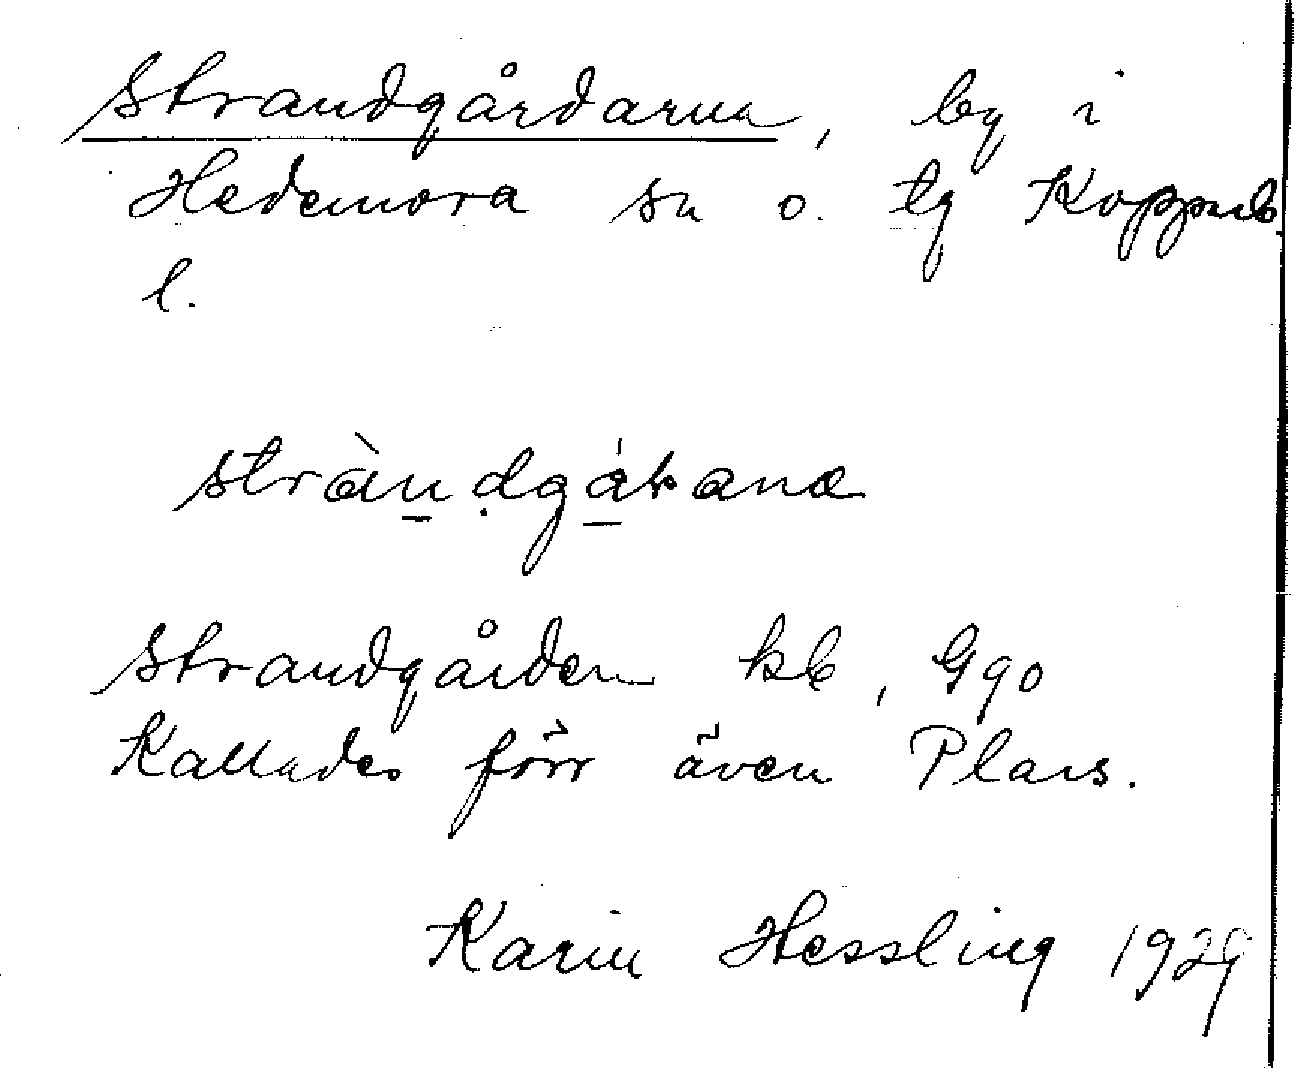 Strandgårdarna, by i
Hedemora sn o. tg Kopparb.
l.
stràndgáɽanα
Strandgården kb, Gqo
Kallades förr även Plars.
Karin Hessling 1929